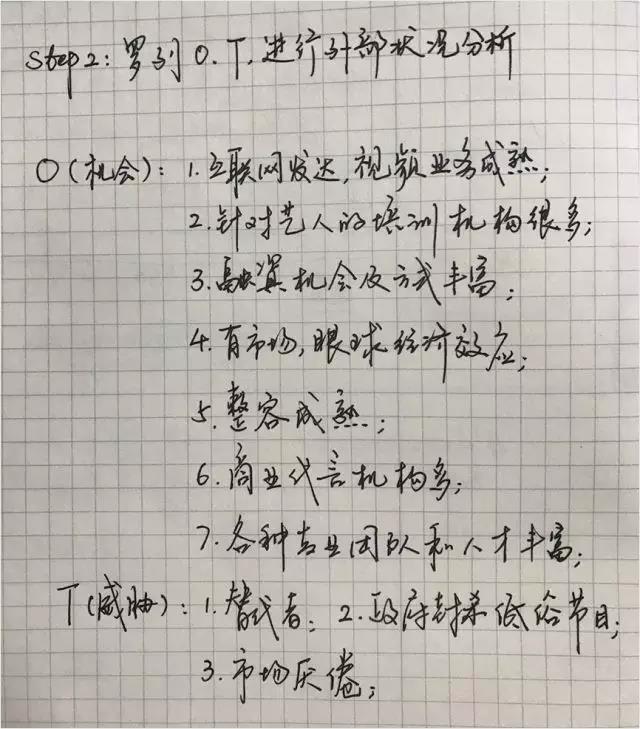 Step2: 罗列O.T.进行外部状况分析
O(机会): 1.互联网发达,视频业务成熟;
2.针对艺人的培训机构很多;
3.融资机会及方式丰富;
4.有市场,眼球经济效应;
5.整容成熟;
6.商业代言机构多;
7.各种专业团队和人才丰富;
T(威胁): 1.替代者; 2.政府封杀低俗节目;
3.市场厌倦;